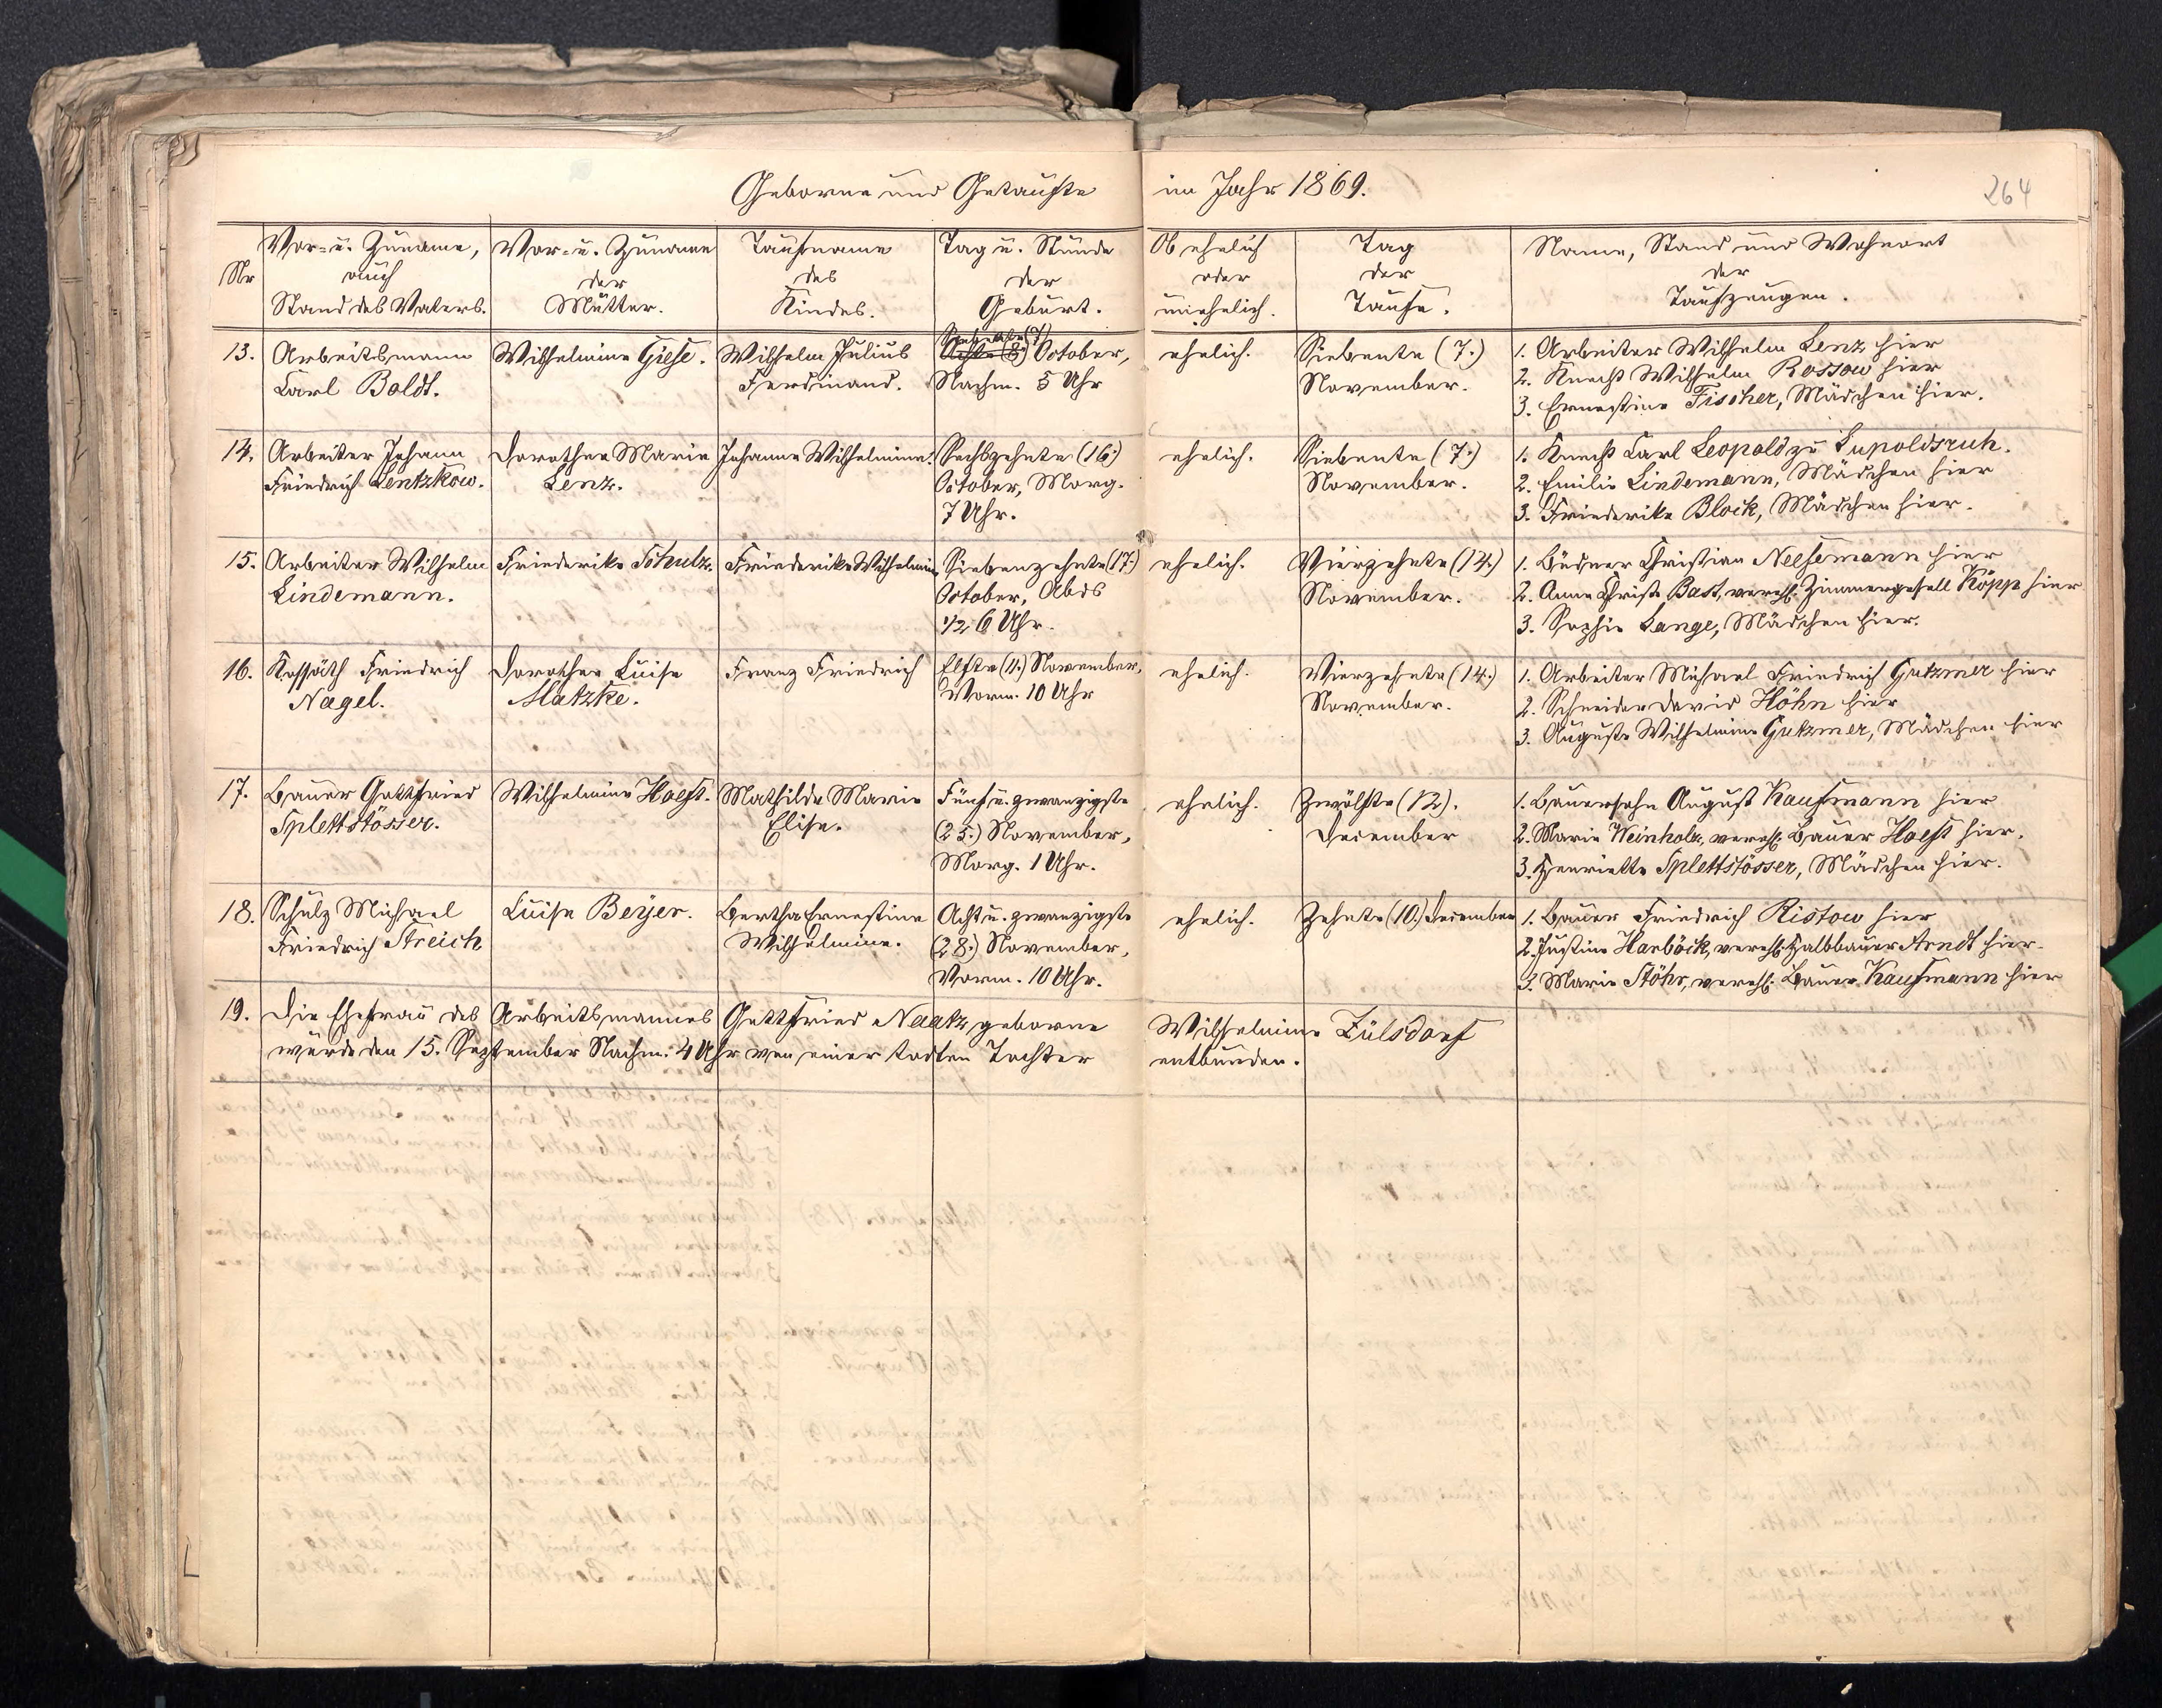 Geborne und Getaufte im Jahr 1869.
264
Nr
Vor- u. Zuname,
auch
Stand des Vaters.
Vor- u. Zuname
der
Mutter.
Taufname
des
Kindes.
Tag u. Stunde
der
Geburt.
Ob ehelich
oder
unehelich.
Tag
der
Taufe.
Name, Stand und Wohnort
der
Taufzeugen.
13.
Arbeitsmann
Carl Boldt.
Wilhelmine Giese.
Wilhelm Julius
Ferdinand.
Siebente (7)
Achte (8) October,
Nachm. 5 Uhr
ehelich.
Siebente (7.)
November.
1. Arbeiter Wilhelm Lenz hier
2. Knecht Wilhelm Rossow hier
3. Ernestine Fischer, Mädchen hier.
14.
Arbeiter Johann
Friedrich Lentzkow.
Dorothee Marie
Lenz.
Johanne Wilhelmine.
Sechszehnte (16.)
October, Morg.
7 Uhr.
ehelich.
Siebente (7.)
November.
1. Knecht Carl Leopold zu Lupoldsruh.
2. Emilie Lindemann, Mädchen hier
3. Friederike Block, Mädchen hier.
15.
Arbeiter Wilhelm
Lindemann.
Friederike Schulz.
Friederike Wilhelmine
Siebenzehnte (17.)
October, Abds
1/2 6 Uhr.
ehelich.
Vierzehnte (14.)
November.
1. Büdner Christian Neesemann hier
2. Anne Christ. Bast, verehl. Zimmergesell Köpp hier
3. Sophie Lange, Mädchen hier.
16.
Kossäth Friedrich
Nagel.
Dorothee Luise
Matzke.
Franz Friedrich
Elfte (11.) November,
Vorm. 10 Uhr
ehelich.
Vierzehnte (14.)
November.
1. Arbeiter Michael Friedrich Gutzmer hier
2. Schneider David Höhn hier
3. Auguste Wilhelmine Gutzmer, Mädchen hier
17.
Bauer Gottfried
Splettstösser.
Wilhelmine Hoeft.
Mathilde Marie
Elise.
Fünf u. zwanzigste
(25.) November,
Morg. 1 Uhr.
ehelich.
Zwölfte (12).
December
1. Bauersohn August Kaufmann hier
2. Marie Weinholz, verehl. Bauer Hoeft hier.
3. Henriette Splettstösser, Mädchen hier.
18.
Schulz Michael
Friedrich Streich
Luise Beyer.
Bertha Ernestine
Wilhelmine.
Acht u. zwanzigste
(28.) November,
Vorm. 10 Uhr.
ehelich.
Zehnte (10.) December
1. Bauer Friedrich Ristow hier
2. Justine Harböck, verehl. Halbbauer Arndt hier.
3. Marie Stöhr, verehl. Bauer Kaufmann hier
19.
Die Ehefrau des Arbeitsmannes Gottfried Naatz geborne Wilhelmine Zülsdorf
wurde den 15. September Nachm. 4 Uhr von einer todten Tochter entbunden.